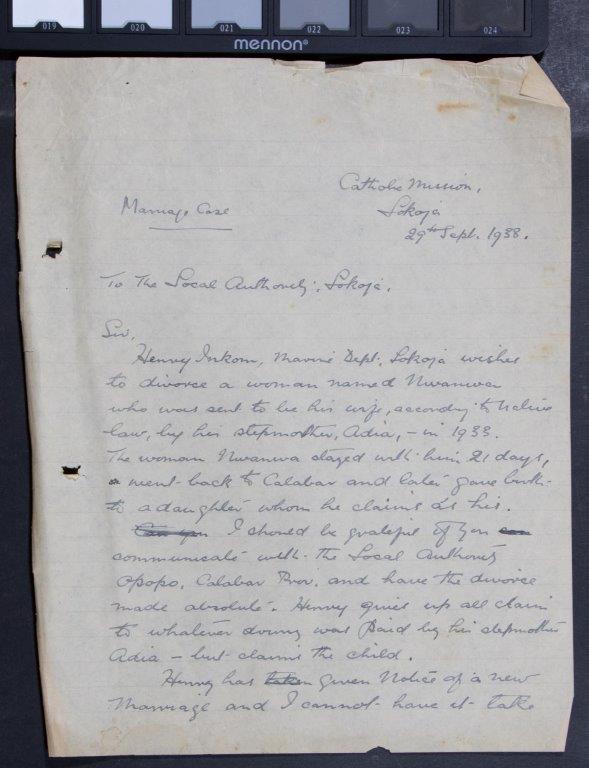 019 020 021 022 023 024
mennon®
Catholic Mission,
Lokoja
29th Sept. 1938.
Marriage Case
To The Local Authority, Lokoja.
Sir,
Henry Inkom, Marine Dept. Lokoja wishes
to divorce a woman named Nwanwa
who was sent to be his wife, according to Native
law, by his stepmother, Adia, - in 1933.
The woman Nwanwa stayed with him 21 days,
went back to Calabar and later gave birth
to a daughter whom he claims as his.
I should be grateful if you
communicate with the Local Authority
Opopo, Calabar Prov. and have the divorce
made absolute. Henry gives up all claim
to whatever dowry was paid by his stepmother
Adia - but claims the child.
Henry has taken given Notice of a new
Marriage and I cannot have it take